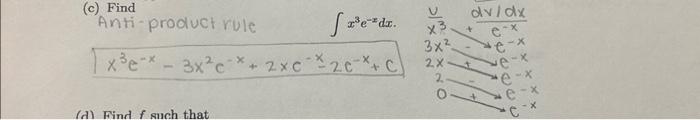 (c) Find
Anti-product rule
∫ x³e⁻ˣdx.
x³e⁻ˣ - 3x²e⁻ˣ + 2xe⁻ˣ - 2e⁻ˣ + C
u dv/dx
x³ + e⁻ˣ
3x² - e⁻ˣ
2x + e⁻ˣ
2 - e⁻ˣ
0 + e⁻ˣ
e⁻ˣ
(d) Find f such that